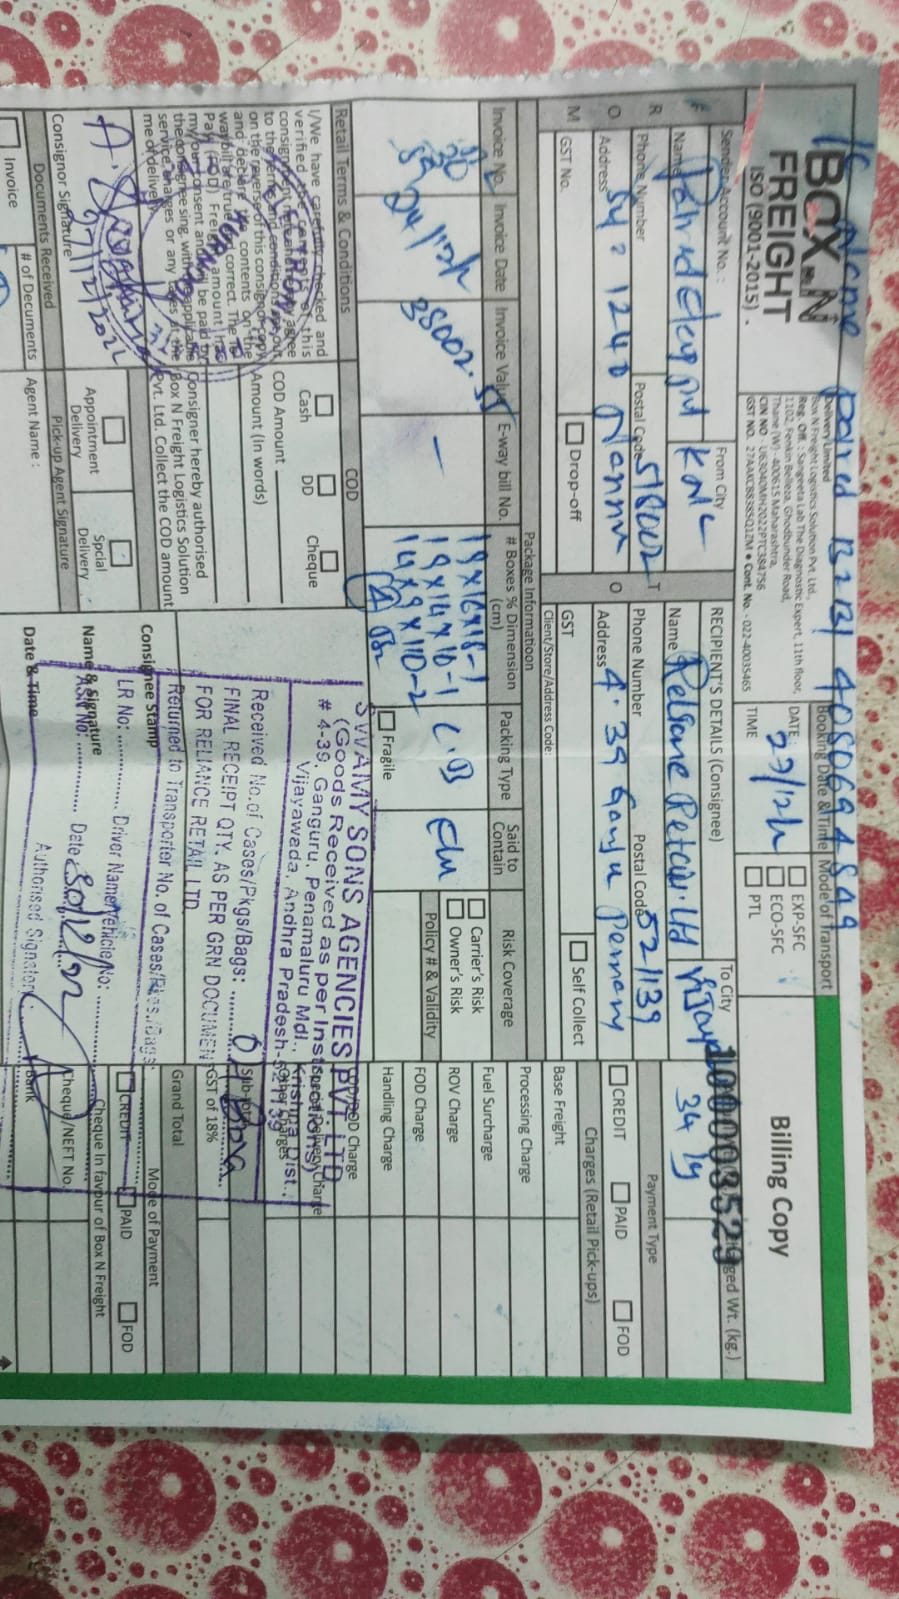 B2B1 4080694849
BOX N
FREIGHT
ISO (9001-2015)
Delivery Limited
Box N Freight Logistics Solution Pvt. Ltd.,
Reg. Off. : Sangeeta Lab The Diagnostic Expert, 11th floor,
1102, Fenkin Belleza, Ghodbunder Road,
Thane (W) - 400615 Maharashtra,
CIN NO - U63040MH2022PTC384756
GST NO. 27AAKCB8385Q1ZM • Cont. No. - 022-40035465
Booking Date & Time
DATE : 27/12/
TIME
Mode of Transport
EXP-SFC
ECO-SFC
PTL
Billing Copy
100003529
Sender Account No. :
From City
Name
Phone Number
Postal Code 518002
Address
GST No.
Drop-off
FROM
TO
RECIPIENT'S DETAILS (Consignee)
To City
Name Reliance Retail Ltd
Phone Number
Postal Code 521139
Address 4.39
GST
Self Collect
Client/Store/Address Code:
Charged Wt. (kg.)
34
Payment Type
CREDIT PAID FOD
Charges (Retail Pick-ups)
Base Freight
Processing Charge
Fuel Surcharge
ROV Charge
FOD Charge
Handling Charge
COD/DOD Charge
Special Delivery Charge
Other Charges
Sub-total
GST of 18%
Grand Total
Mode of Payment
CREDIT PAID FOD
Cheque In favour of Box N Freight
Cheque/NEFT No.
Bank
Package Informatioon
Invoice No. Invoice Date Invoice Value E-way bill No. # Boxes % Dimension (cm) Packing Type Said to Contain Risk Coverage
24/12/
38002.55
-
19x14x10-1
C.B
Fragile
Carrier's Risk
Owner's Risk
Policy # & Validity
Retail Terms & Conditions
I/We have carefully checked and
verified the contents of this
consignment note and hereby agree
to the terms and conditions set out
on the reverse of this consignor copy
and declare the contents on the
waybill are true and correct. The To
Pay (FOD) Freight amount has
my/our consent and will be paid by
the consignee sing. with the applicable
service charges or any taxes at the
me of delivery.
KURNOOL
27/12/2022
Consignor Signature
COD
Cash DD Cheque
COD Amount
Amount (In words)
Consigner hereby authorised
Box N Freight Logistics Solution
Pvt. Ltd. Collect the COD amount
Appointment Delivery
Spcial Delivery
Pick-up Agent Signature
Agent Name :
Documents Received
Invoice
# of Documents
SWAMY SONS AGENCIES PVT. LTD.
(Goods Received as per Instructions)
# 4-39, Ganguru, Penamaluru Mdl., Krishna Dist.,
Vijayawada, Andhra Pradesh-521139
Received No.of Cases/Pkgs/Bags:
FINAL RECEIPT QTY. AS PER GRN DOCUMENT
FOR RELIANCE RETAIL LTD.
Returned to Transporter No. of Cases/Pkgs./Bags:
Consignee Stamp
LR No: Driver Name/Vehicle No:
Name & Signature
ASN No: Date : 30/12/22
Authorised Signatory
Date & Time